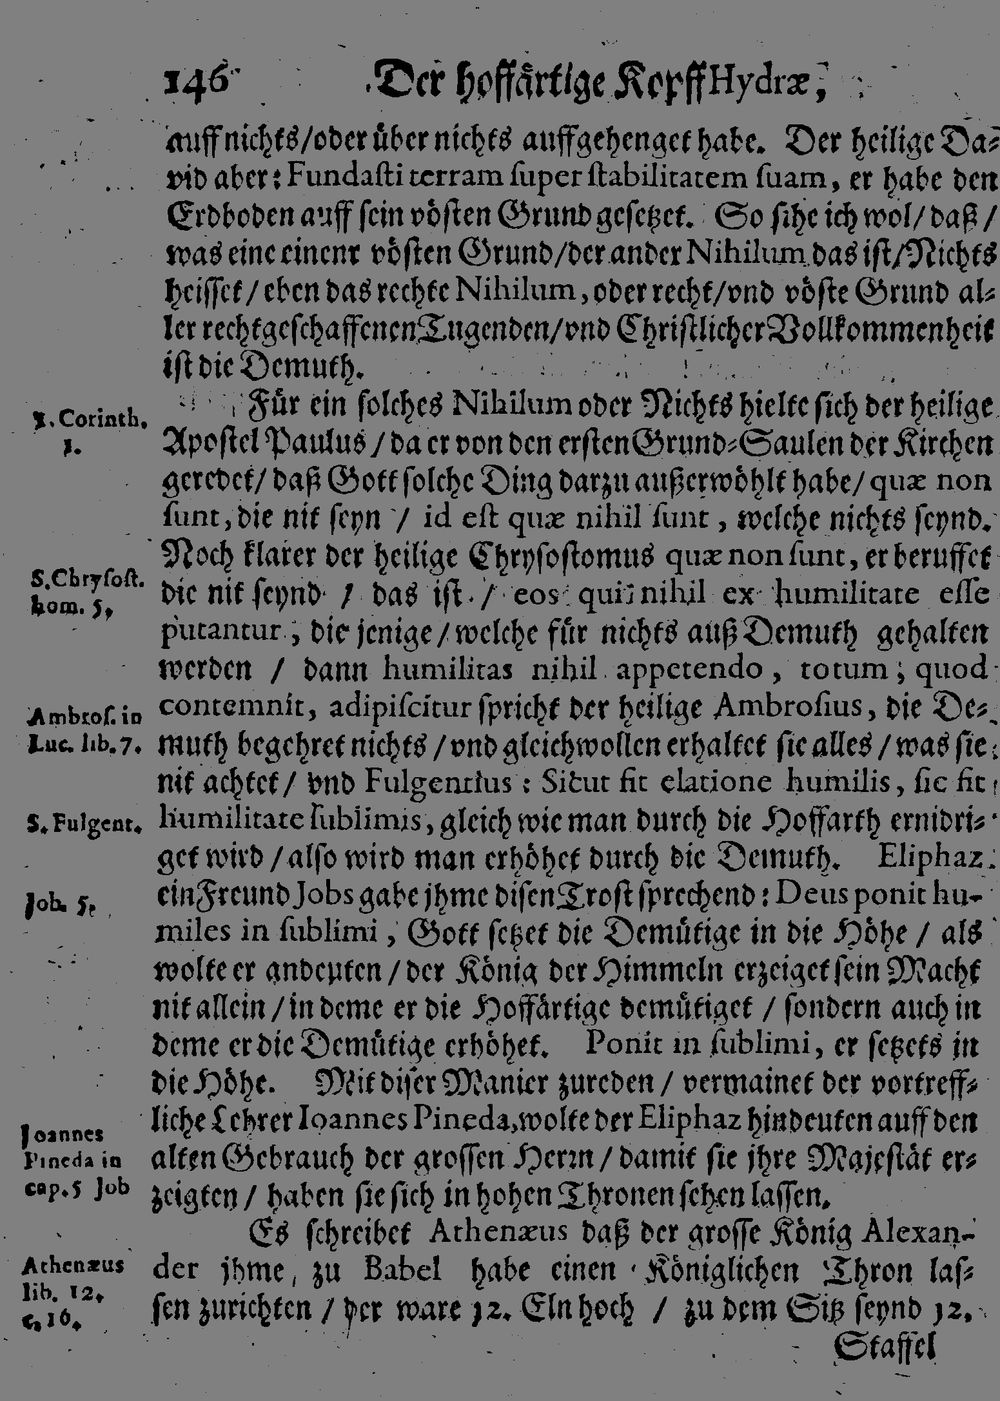 146 Der hoffärtige Kopff Hydræ,
auff nichts/oder über nichts auffgehenget habe. Der heilige Da-
vid aber: Fundasti terram super stabilitatem suam, er habe den
Erdboden auff sein vösten Grund gesetzet. So sihe ich wol/ daß/
was eine einem vösten Grund/der ander Nihilum das ist/Nichts
heisset/ eben das rechte Nihilum, oder recht/vnd vöste Grund al-
ler rechtgeschaffenen Tugenden/vnd Christlicher Vollkommenheit
ist die Demuth.
Für ein solches Nihilum oder Nichts hielte sich der heilige
1. Corinth.
1.
Apostel Paulus/ da er von den ersten Grund-Saulen der Kirchen
geredet/ daß Gott solche Ding darzu außerwöhlt habe/ quæ non
sunt, die nit seyn / id est quæ nihil sunt, welche nichts seynd.
Noch klarer der heilige Chrysostomus quæ non sunt, er beruffet
S. Chrysost.
hom. 5.
die nit seynd / das ist / eos qui nihil ex humilitate esse
putantur, die jenige/ welche für nichts auß Demuth gehalten
werden / dann humilitas nihil appetendo, totum; quod
contemnit, adipiscitur spricht der heilige Ambrosius, die De-
Ambros. in
Luc. lib. 7.
muth begehret nichts/ vnd gleichwollen erhaltet sie alles/ was sie
nit achtet/ vnd Fulgentius: Sicut fit elatione humilis, sic fit
S. Fulgent.
humilitate sublimis, gleich wie man durch die Hoffarth ernidri-
get wird/ also wird man erhöhet durch die Demuth. Eliphaz
Job. 5.
ein Freund Jobs gabe jhme disen Trost sprechend: Deus ponit hu-
miles in sublimi, Gott setzet die Demütige in die Höhe/ als
wolte er andeuten/ der König der Himmeln erzeiget sein Macht
nit allein/ in deme er die Hoffärtige demütiget / sondern auch in
deme er die Demütige erhöhet. Ponit in sublimi, er setzets in
die Höhe. Mit diser Manier zureden/ vermainet der vortreff-
liche Lehrer Ioannes Pineda, wolte der Eliphaz hindeuten auff den
Joannes
Pineda in
cap. 5 Job
alten Gebrauch der grossen Herrn/ damit sie jhre Majestät er-
zeigten/ haben sie sich in hohen Thronen sehen lassen.
Es schreibet Athenæus daß der grosse König Alexan-
Athenæus
lib. 12.
c. 16.
der jhme, zu Babel habe einen Königlichen Thron las-
sen zurichten/ der ware 12. Eln hoch / zu dem Sitz seynd 12.
Staffel